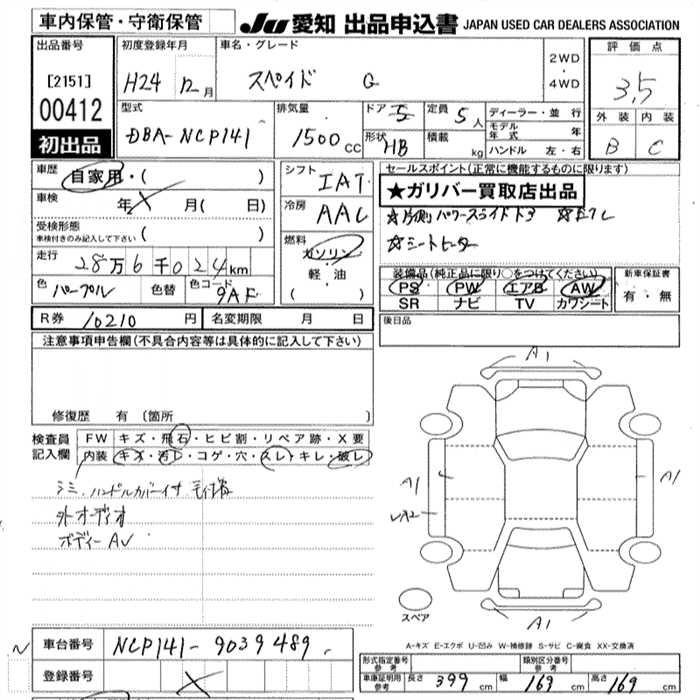 車内保管・守衛保管
JU 愛知 出品申込書 JAPAN USED CAR DEALERS ASSOCIATION
出品番号
[2151]
00412
初出品
初度登録年月
H24 年 12 月
車名・グレード
スペイド G
2WD
・
4WD
評価点
3.5
外装 内装
B C
型式
DBA-NCP141
排気量
1500 cc
ドア 5
形状 HB
定員 5 人
積載 kg
ディーラー・並行
モデル年式 年
ハンドル 左・右
車歴
自家用・( )
車検
年 月( 日)
受検形態
車検付きのみ記入して下さい ( )
走行
28万6千024km
色 パープル 色替 色コード 9AF
シフト IAT
冷房 AAC
燃料
ガソリン
軽・油
( )
セールスポイント(正常に機能するものに限ります)
★ガリバー買取店出品
☆片側パワースライドドア ☆ETC
☆シートヒーター
装備品(純正品に限り○をつけてください)
PS PW エアB AW
SR ナビ TV カワシート
新車保証書
有・無
R券 10210 円 名変期限 月 日
後日品
注意事項申告欄(不具合内容等は具体的に記入して下さい)
修復歴 有 (箇所 )
検査員記入欄
FW キズ・飛石・ヒビ割・リペア跡・X要
内装 キズ・汚レ・コゲ・穴・スレ・キレ・破レ
シミ、ハンドルカバー付
外オーディオ
ボディー AU
A1
A1
A1
A1
スペア
A-キズ E-エクボ U-凹み W-補修跡 S-サビ C-腐食 XX-交換済
車台番号 NCP141-9039489
登録番号
形式指定番号 参考
類別区分番号 参考
車庫証明用 参考 長さ 399 cm 幅 169 cm 高さ 169 cm